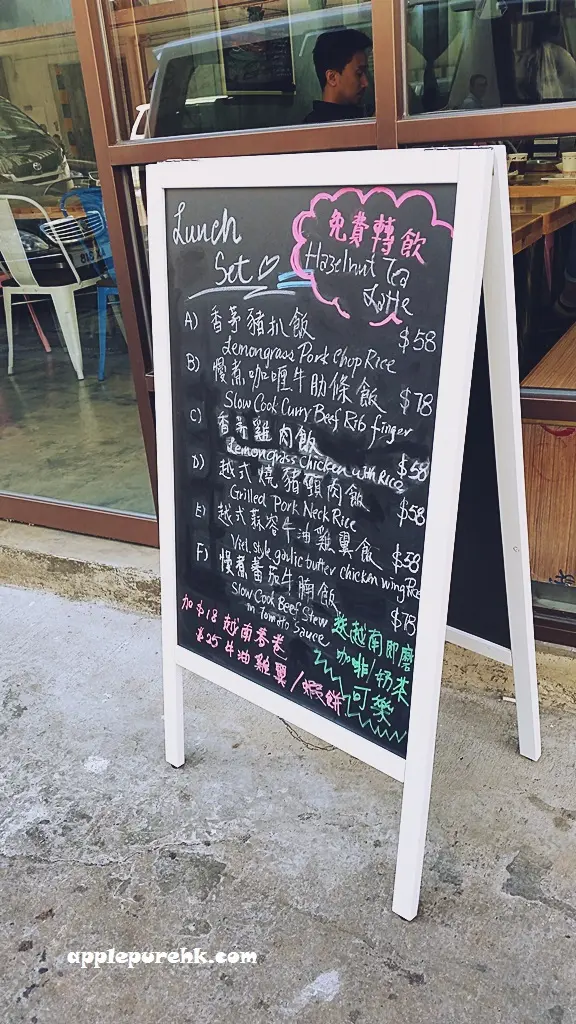 Lunch
Set
免費轉飲
Hazelnut Tea
Latte
A) 香茅豬扒飯 $58
Lemongrass Pork Chop Rice
B) 慢煮咖喱牛肋條飯 $78
Slow Cook Curry Beef Rib finger
C) 香茅雞肉飯 $58
Lemongrass chicken with Rice
D) 越式燒豬頸肉飯 $58
Grilled Pork Neck Rice
E) 越式蒜容牛油雞翼飯 $58
Viet. style garlic butter chicken wing Rice
F) 慢煮蕃茄牛腩飯 $78
Slow Cook Beef Stew
in Tomato Sauce
加$18 越南春卷
$25 牛油雞翼/蝦餅
越南即磨
咖啡/奶茶
可樂
applepurehk.com